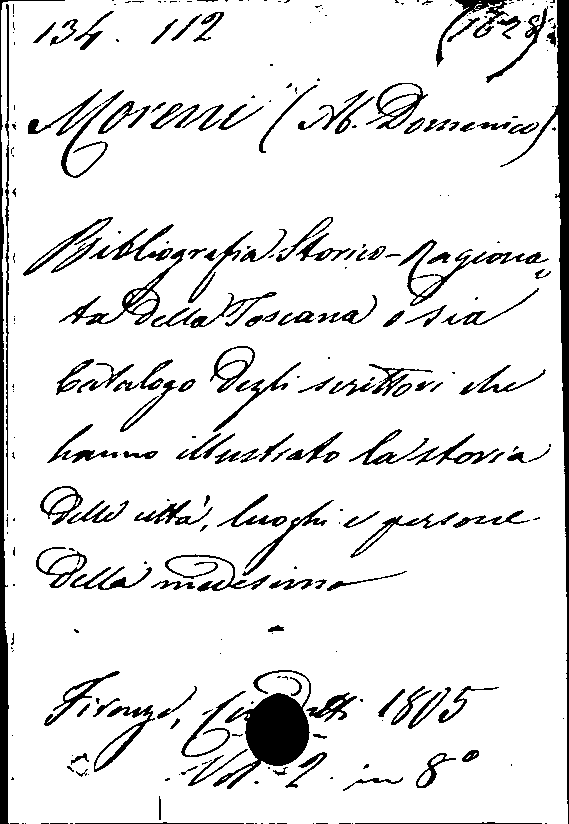 134. 112 (1628)
Moreni (Ab. Domenico).
Bibliografia Storico-Ragiona-
ta della Toscana o sia
Catalogo degli scrittori che
hanno illustrato la storia
delle città, luoghi e persone
della medesima
Firenze, 1805
Vol. 2 in 8°